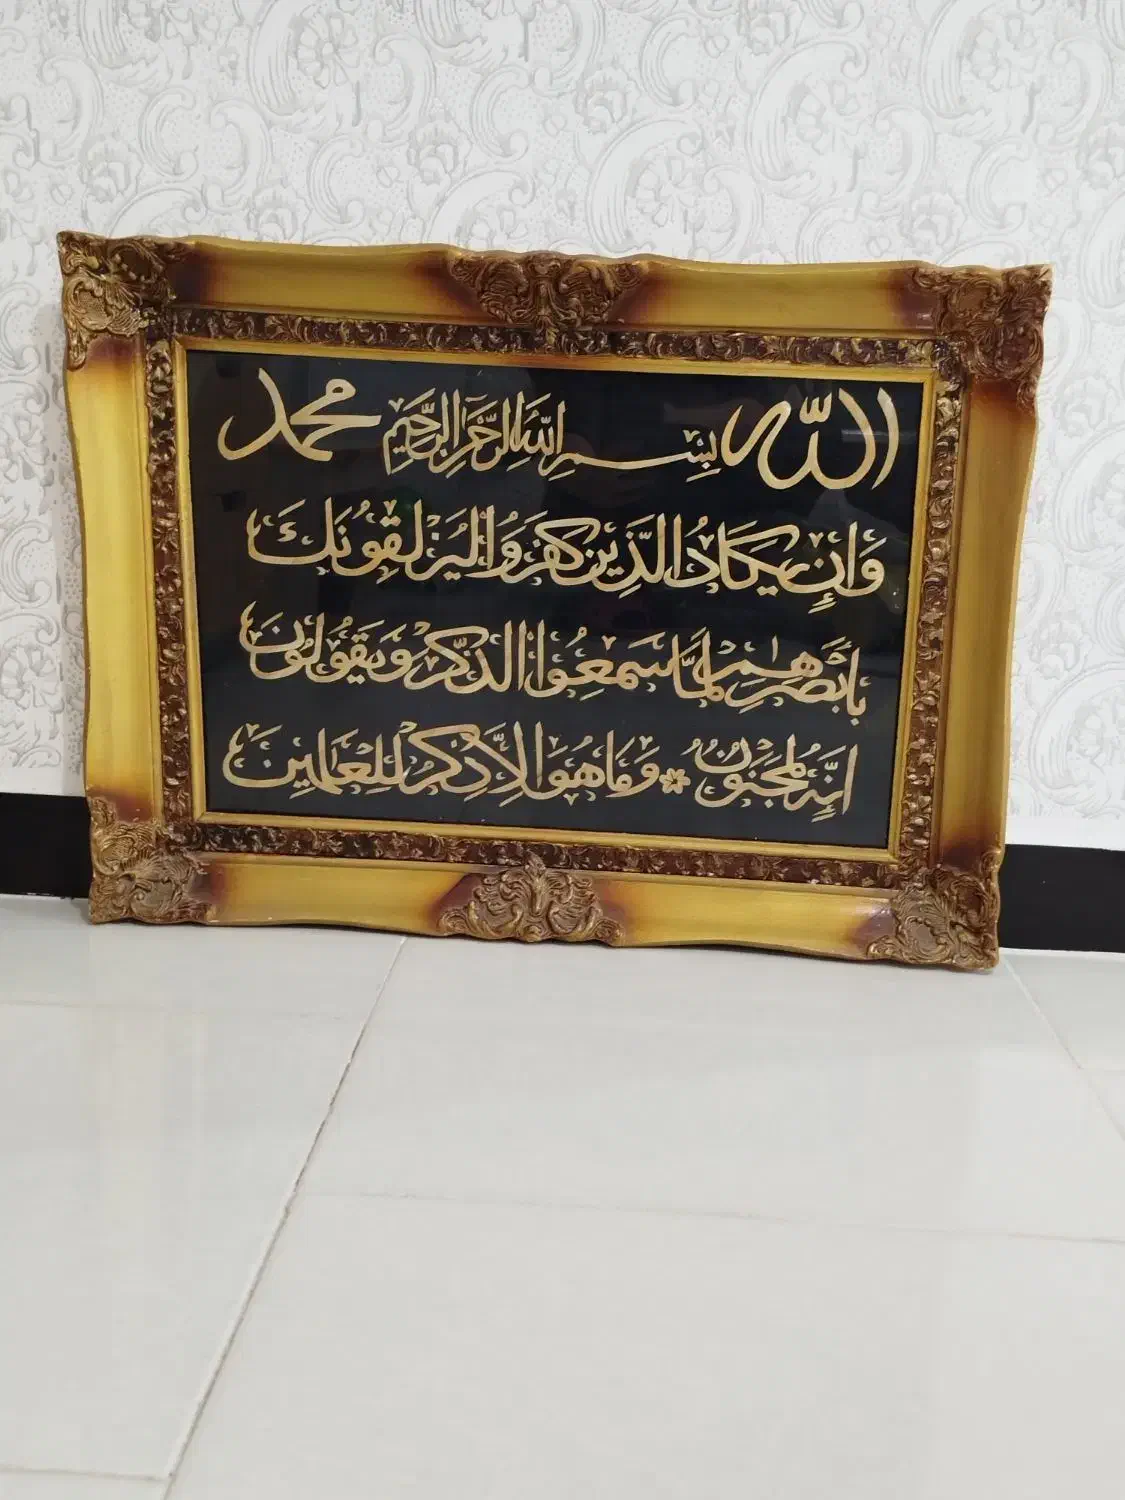 الله بِسْمِ اللهِ الرَّحْمٰنِ الرَّحِيمِ محمد
وَإِن يَكَادُ الَّذِينَ كَفَرُوا لَيُزْلِقُونَكَ
بِأَبْصَٰرِهِمْ لَمَّا سَمِعُوا الذِّكْرَ وَيَقُولُونَ
إِنَّهُ لَمَجْنُونٌ وَمَا هُوَ إِلَّا ذِكْرٌ لِلْعَالَمِينَ